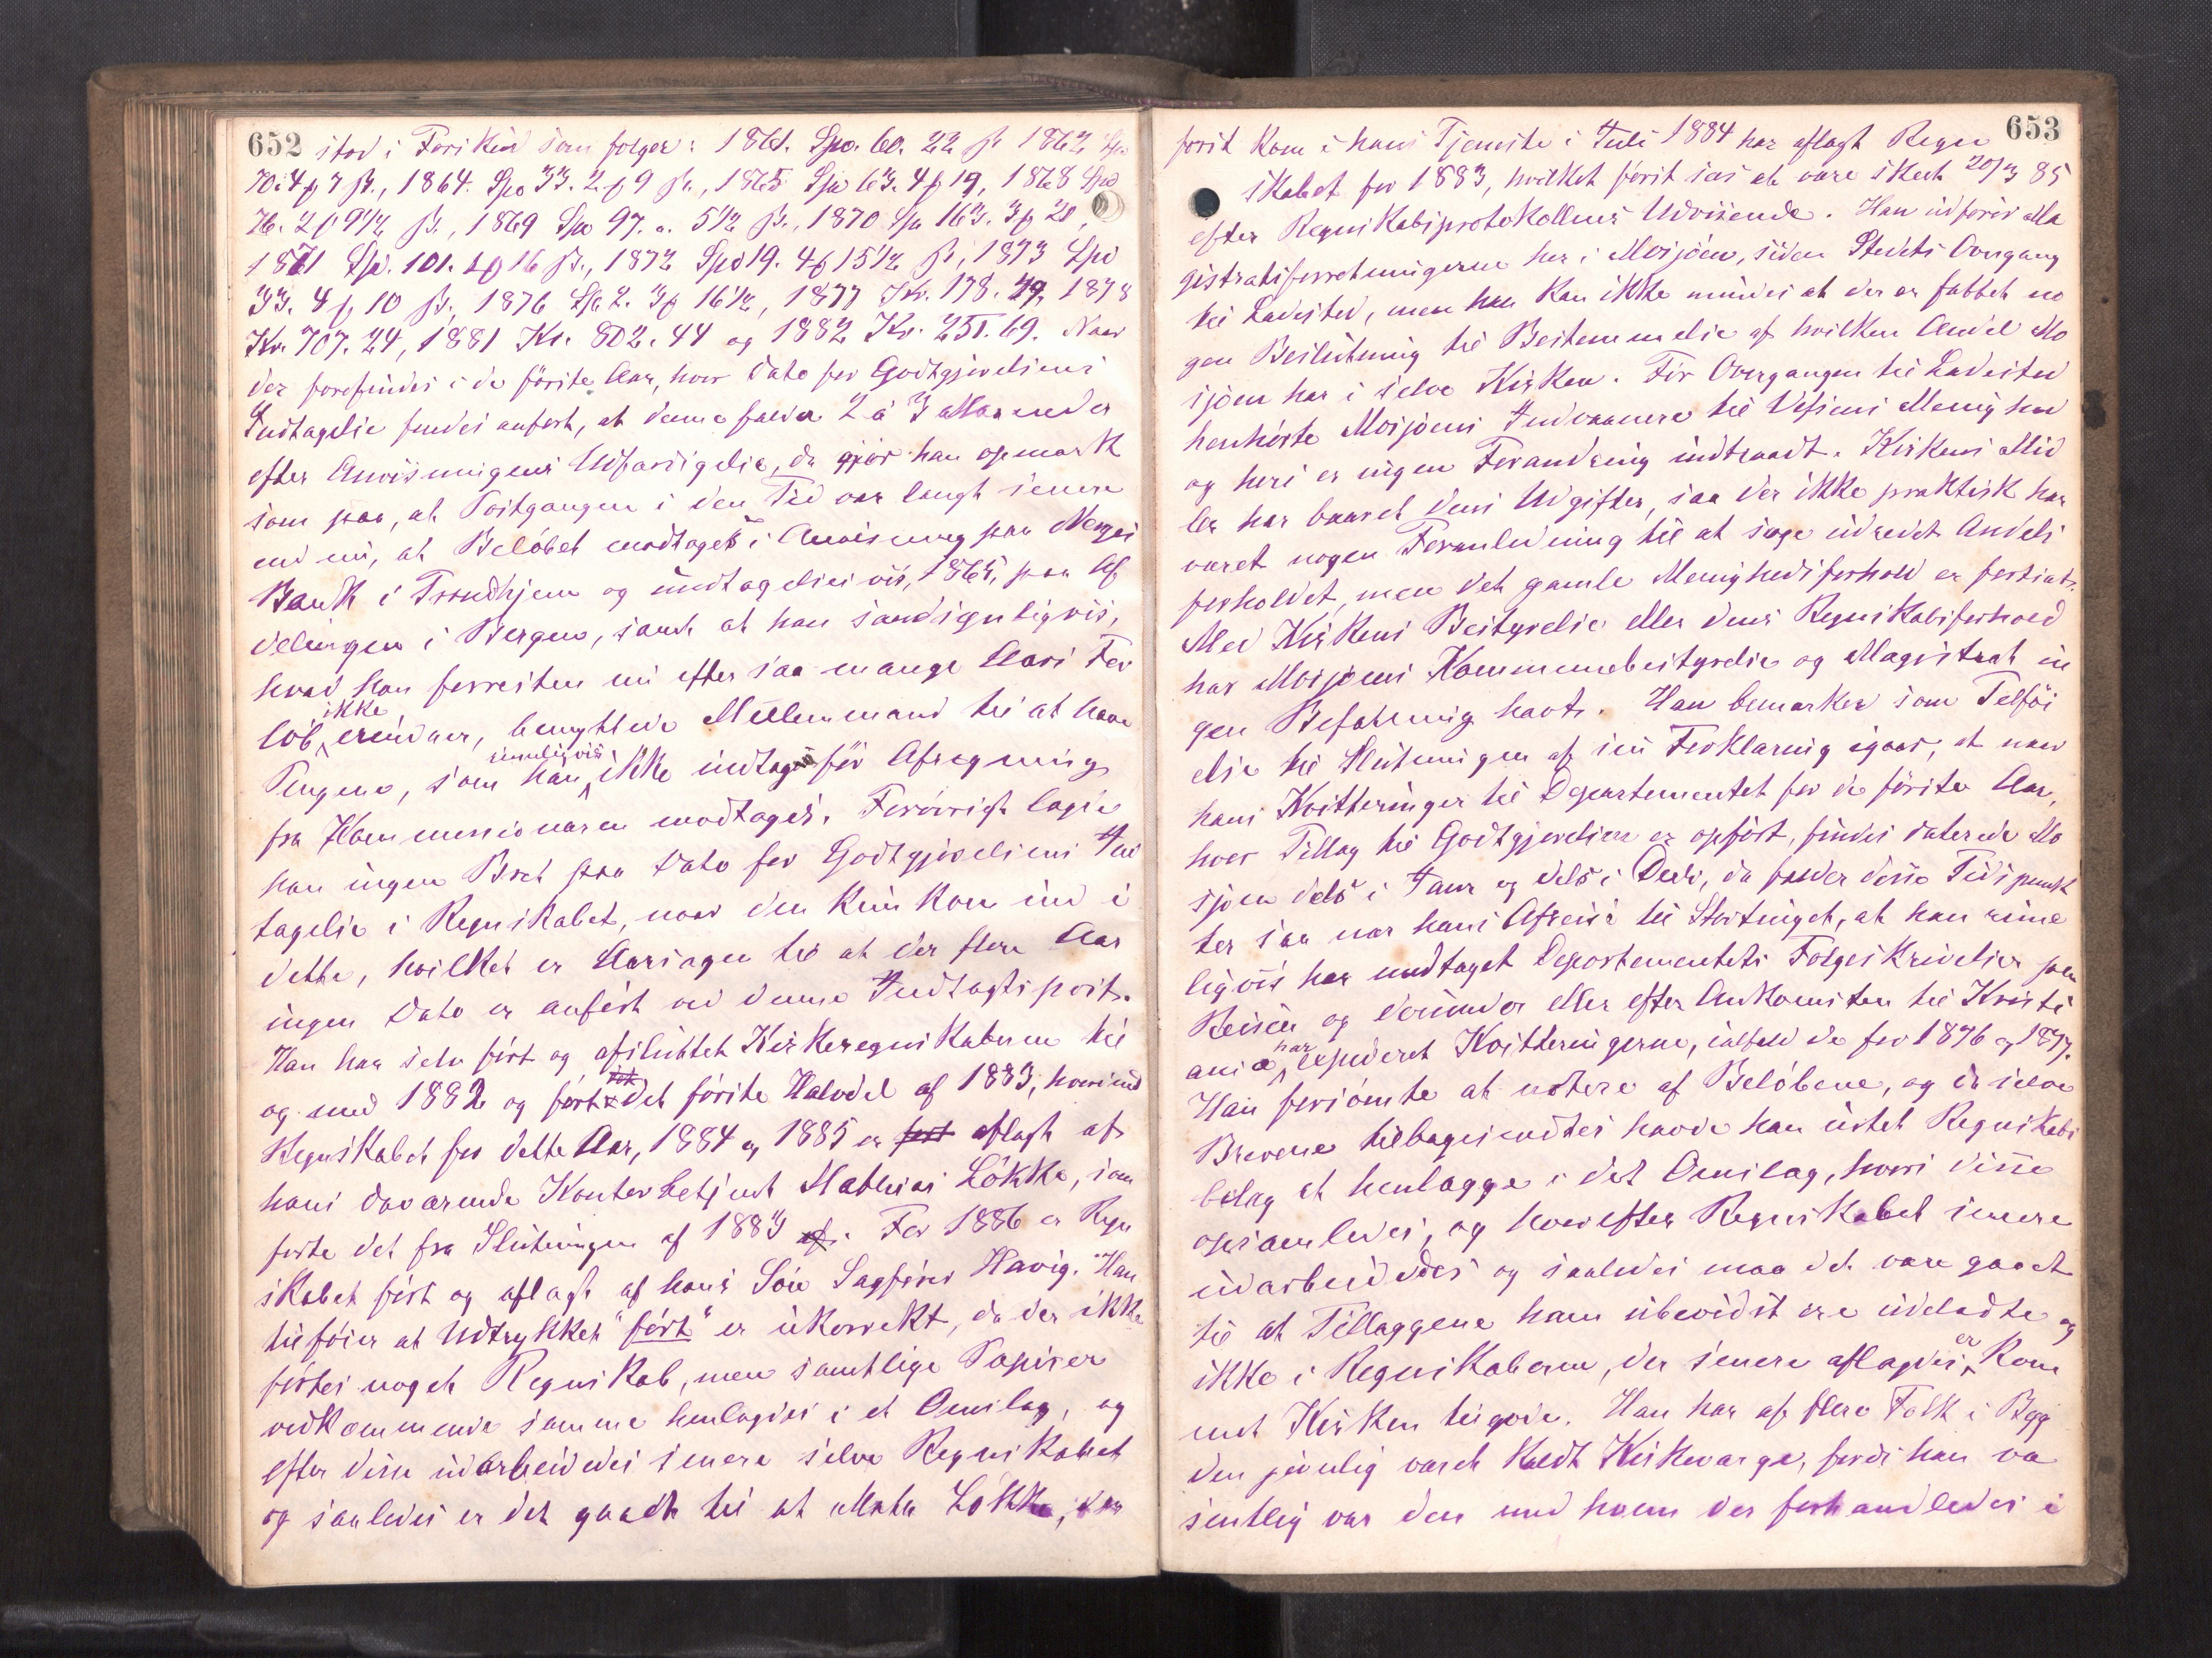 652
stod i Forskud som følger: 1861. Spd. 60. 22 ß 1862 Spd
70. 4 ƒ 7 ß., 1864. Spd 33. 2 ƒ 9 ß., 1865 Spd 63. 4 ƒ 19, 1868 Spd
76. 2 ƒ 9 1/2 ß., 1869 Spd 97. 0. 5 1/2 ß., 1870 Spd 163. 3 ƒ 20,
1871 Spd. 101. 1 ƒ 16 ß., 1872 Spd 19. 4 ƒ 15 1/2 ß, 1873 Spd
33. 4 ƒ 10 ß, 1876 Spd 2. 3 ƒ 16 1/2, 1877 Kr. 178. 49, 1878
Kr. 707. 24, 1881 Kr. 802. 44 og 1882 Kr. 251. 69. Naar
der forefindes i de første Aar, hvor Dato for Godtgjørelsens
Indtagelse findes anført, at denne falder 2 à 3 Maaneder
efter Anvisningens Udfærdigelse, da gjør han opmærk
som paa, at Postgangen i den Tid var langt senere
end nu, at Beløbet modtoges i Anvisning paa Norges
Bank i Trondhjem og undtagelsesvis, 1865, paa Af
delingen i Bergen, samt at han sandsynligvis,
hvad han forresten nu efter saa mange Aars For
løb ikke erindrer, benyttede Mellemmand til at hæve
Pengene, som han rimeligvis ikke indtog før Afregning
fra Kommissionæren modtoges. Forøvrigt lagde
han ingen Bret paa Dato for Godtgjørelsens Ind
tagelse i Regnskabet, naar den kun kom ind i
dette, hvilket er Aarsagen til at der flere Aar
ingen Dato er anført ved denne Indtægtspost.
Han har selv ført og afsluttet Kirkeregnskaberne til
og med 1882 og ført det første Halvdel af 1883, hvorimod
Regnskabet for dette Aar, 1884 og 1885 er aflagt af
hans daværende Kontorbetjent Mathias Løkke, som
førte det fra Slutningen af 1883. For 1886 er Regn
skabet ført og aflagt af hans Søn Sagfører Havig. Han
tilføier at Udtrykket "ført" er ukorrekt, da der ikke
førtes noget Regnskab, men samtlige Papirer
vedkommende samme henlagdes i et Omslag, og
efter disse udarbeidedes senere selve Regnskabet
og saaledes er det gaaet til at Maths Løkke, som
653
først kom i hans Tjeneste i Juli 1884 har aflagt Regn
skabet for 1883, hvilket først sees at være skeet 20/3 85
efter Regnskabsprotokollens Udvisende. Han udfører Ma
gistratsforretningerne her i Mosjøen, siden Stedets Overgang
til Ladested, men han kan ikke mindes at der er fattet no
gen Beslutning til Bestemmelse af hvilken Andel Mo
sjøen har i selve Kirken. Før Overgangen til Ladested
henhørte Mosjøens Indvaanere til Vefsens Menighed
og heri er ingen Forandring indtraadt. Kirkens Mid
ler har baaret dens Udgifter, saa der ikke praktisk har
været nogen Foranledning til at søge udredet Andels
forholdet, men det gamle Menighedsforhold er fortsat.
Med Kirkens Bestyrelse eller dens Regnskabsforhold
har Mosjøens Kommunebestyrelse og Magistrat in
gen Befatning havt. Han bemærker som Tilføi
else til Slutningen af sin Forklaring igaar, at naar
hans Kvitteringer til Departementet for de første Aar,
hvor Tillæg til Godtgjørelsen er opført, findes daterede Mo
sjøen dels i Janr og dels i Decbr, da falder disse Tidspunk
ter saa nær hans Afreise til Storthinget, at han rime
ligvis har modtaget Departementets Følgeskrivelser paa
Reisen og derunder eller efter Ankomsten til Kristi
ania har expederet Kvitteringerne, ialfald de for 1876 og 1877.
Han forsømte at notere af Beløbene, og da selve
Brevene tilbagesendtes havde han intet Regnskabs
bilag at henlægge i det Omslag, hvori disse
opsamledes, og hvorefter Regnskabet senere
udarbeidedes og saaledes maa det være gaaet
til at Tillæggene ham ubevidst ere udeladte og
ikke i Regnskaberne, der senere aflagdes, er kom
met Kirken tilgode. Han har af flere Folk i Byg
den jevnlig været kaldt Kirkeværge, fordi han væ
sentlig var den med hvem der forhandledes i